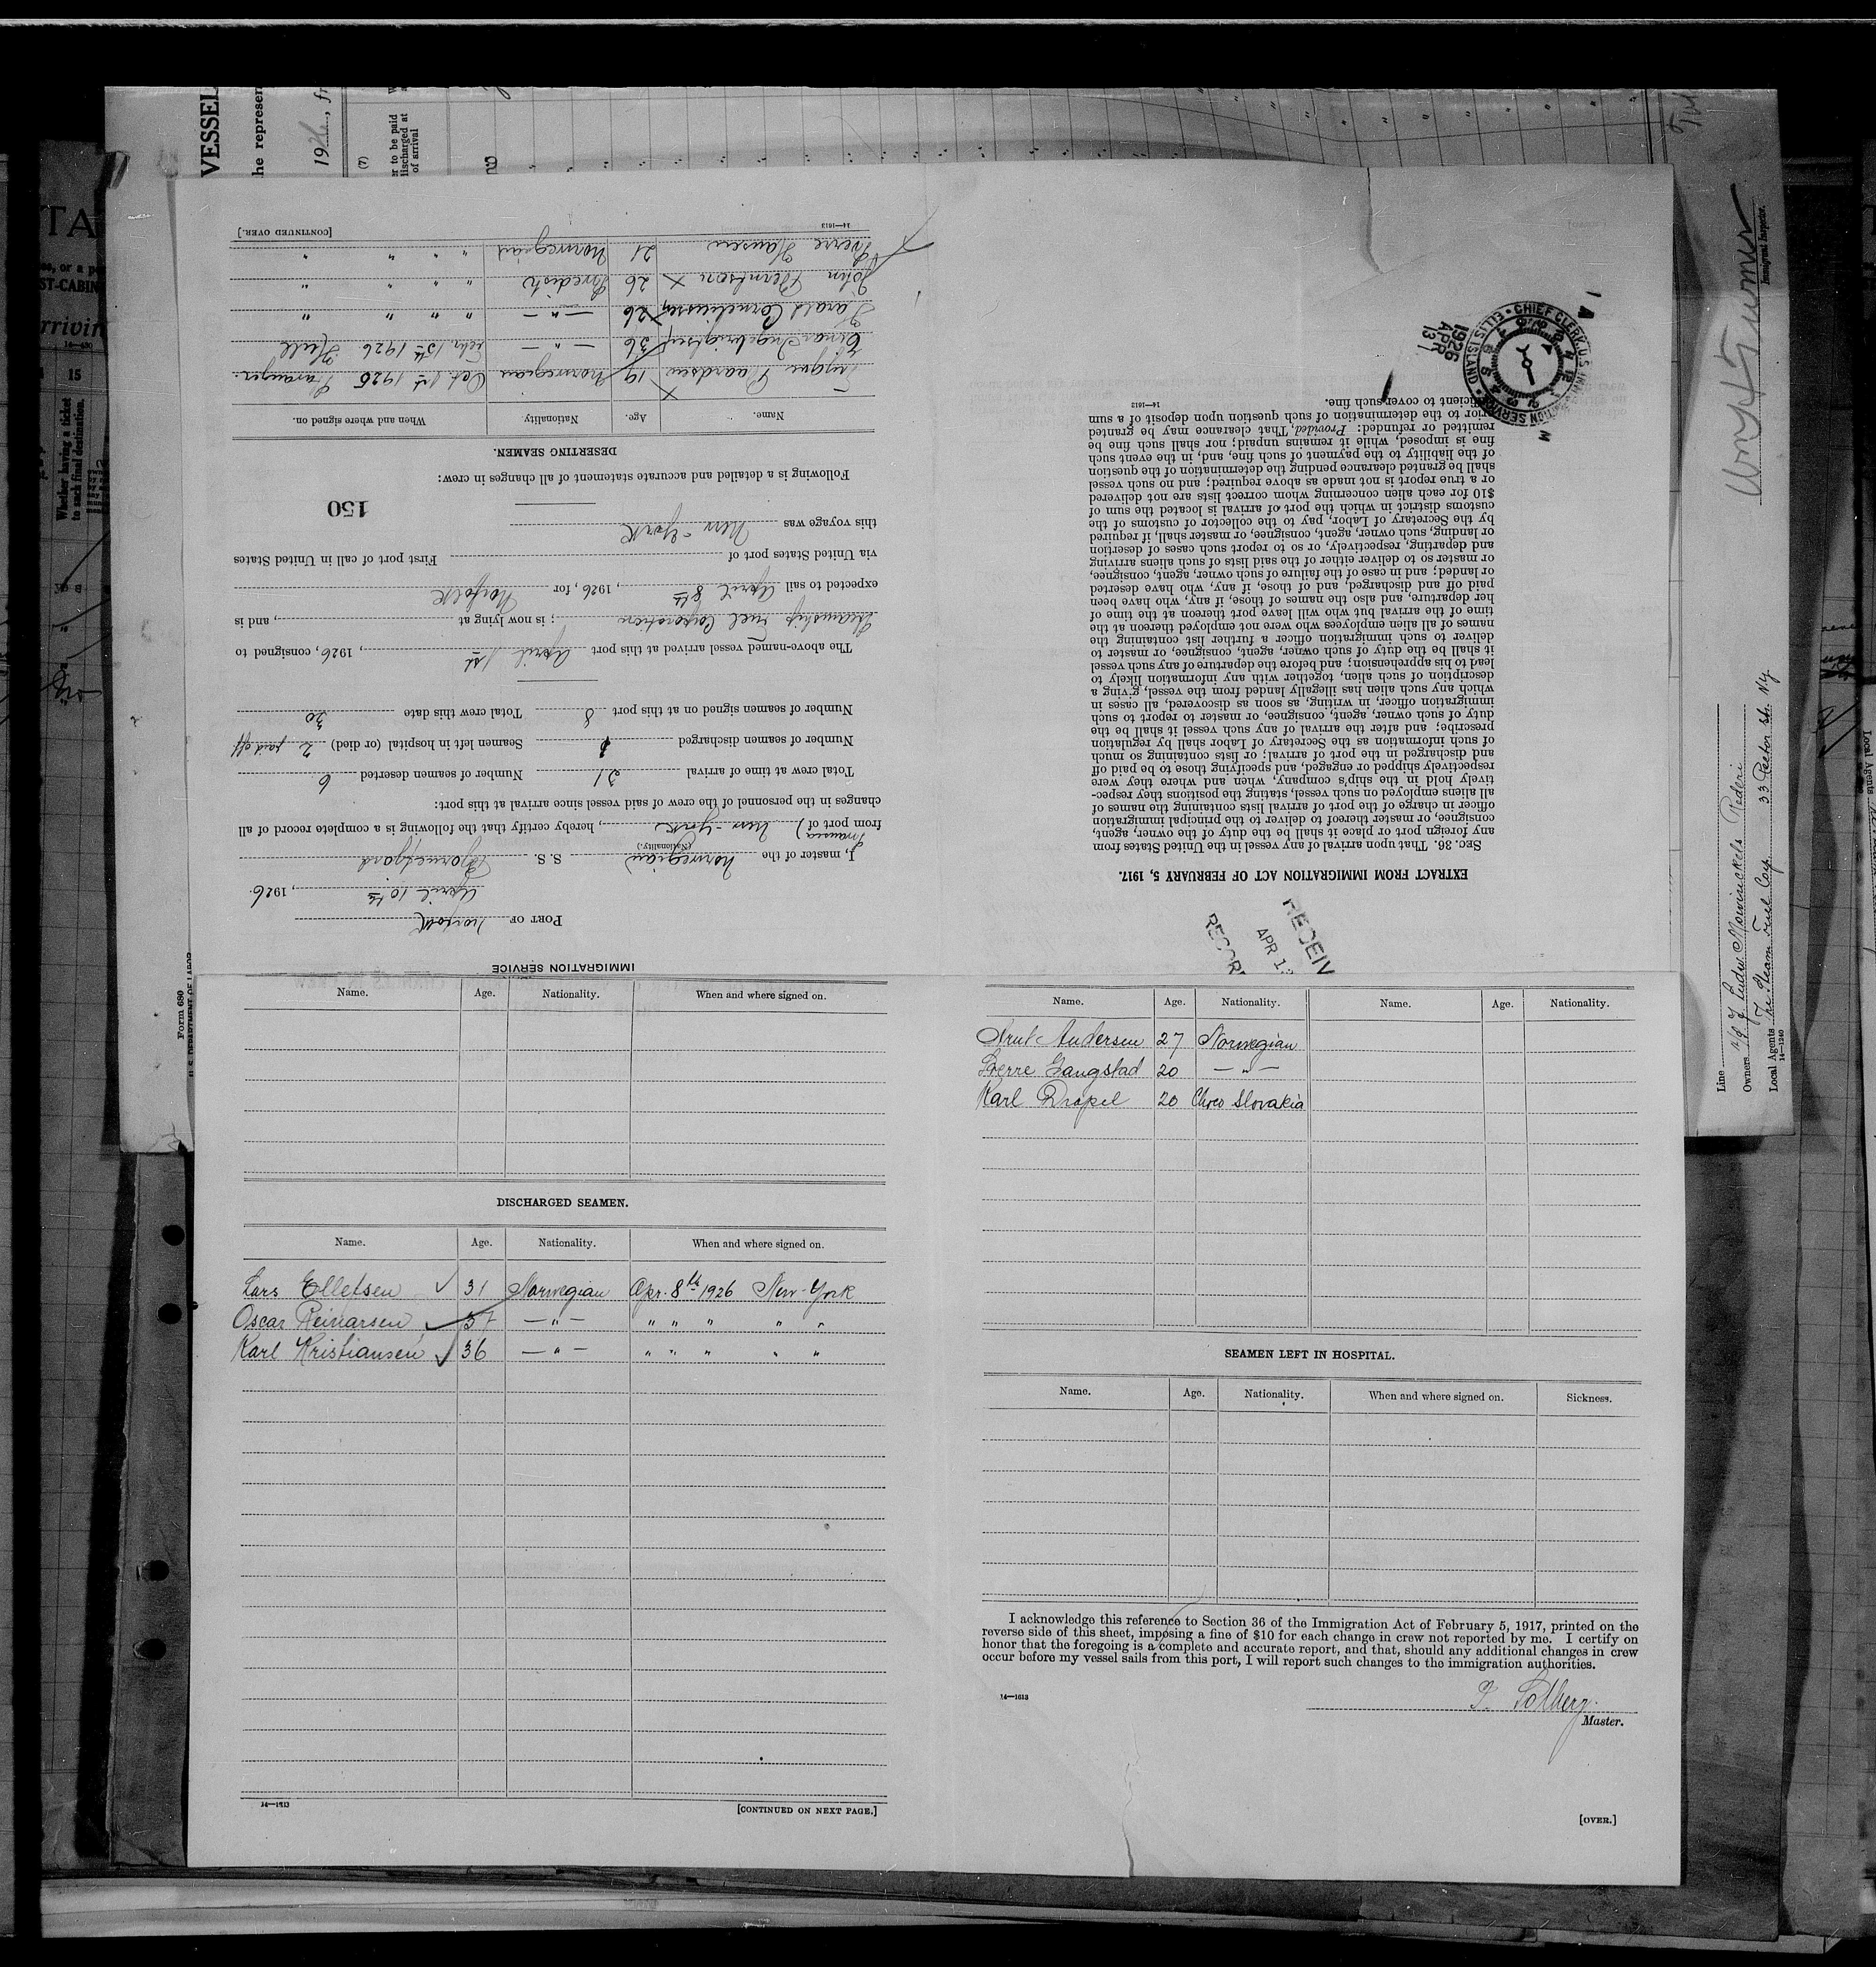 Form 680
U. S. DEPARTMENT OF LABOR
IMMIGRATION SERVICE
PORT OF Norfolk
April 10th, 1926.
I, master of the Norwegian S. S. Bjornefjord
(Nationality.)
from port of New-York, hereby certify that the following is a complete record of all
changes in the personnel of the crew of said vessel since arrival at this port:
Total crew at time of arrival 31 Number of seamen deserted 6
Number of seamen discharged Seamen left in hospital (or died) 2 paid off
Number of seamen signed on at this port 8 Total crew this date 30
The above-named vessel arrived at this port April 1st, 1926, consigned to
Steamship Fuel Corporation; is now lying at , and is
expected to sail April 8th, 1926, for Norfolk
via United States port of First port of call in United States
this voyage was New-York
150
Following is a detailed and accurate statement of all changes in crew:
DESERTING SEAMEN.
Name. Age. Nationality. When and where signed on.
Trygve Baardsen 19 Norwegian Oct. 1st 1925 Stavanger.
Einar Ingebrigtsen 36 —"— Febr. 15th 1926 Hull
Harald Corneliussen 26 —"— " " " "
John Berntson X 26 Swedish " " " "
Sverre Hansen 21 Norwegian " " " "
14—1613 [CONTINUED OVER.]
EXTRACT FROM IMMIGRATION ACT OF FEBRUARY 5, 1917.
SEC. 36. That upon arrival of any vessel in the United States from
any foreign port or place it shall be the duty of the owner, agent,
consignee, or master thereof to deliver to the principal immigration
officer in charge of the port of arrival lists containing the names of
all aliens employed on such vessel, stating the positions they respec-
tively hold in the ship's company, when and where they were
respectively shipped or engaged, and specifying those to be paid off
and discharged in the port of arrival; or lists containing so much
of such information as the Secretary of Labor shall by regulation
prescribe; and after the arrival of any such vessel it shall be the
duty of such owner, agent, consignee, or master to report to such
immigration officer, in writing, as soon as discovered, all cases in
which any such alien has illegally landed from the vessel, giving a
description of such alien, together with any information likely to
lead to his apprehension; and before the departure of any such vessel
it shall be the duty of such owner, agent, consignee, or master to
deliver to such immigration officer a further list containing the
names of all alien employees who were not employed thereon at the
time of the arrival but who will leave port thereon at the time of
her departure, and also the names of those, if any, who have been
paid off and discharged, and of those, if any, who have deserted
or landed; and in case of the failure of such owner, agent, consignee,
or master so to deliver either of the said lists of such aliens arriving
and departing, respectively, or so to report such cases of desertion
or landing, such owner, agent, consignee, or master shall, if required
by the Secretary of Labor, pay to the collector of customs of the
customs district in which the port of arrival is located the sum of
$10 for each alien concerning whom correct lists are not delivered
or a true report is not made as above required; and no such vessel
shall be granted clearance pending the determination of the question
of the liability to the payment of such fine, and, in the event such
fine is imposed, while it remains unpaid; nor shall such fine be
remitted or refunded: Provided, That clearance may be granted
prior to the determination of such question upon deposit of a sum
sufficient to cover such fine.
14—1613
CHIEF CLERK, U.S. IMMIGRATION SERVICE ELLIS ISLAND
1926
APR
13
RECEIV
APR 13
RECOR
Name. Age. Nationality. When and where signed on.
DISCHARGED SEAMEN.
Name. Age. Nationality. When and where signed on.
Lars Ellefsen 31 Norwegian Apr. 8th 1926 New-York
Oscar Reinarsen 37 —"— " " " " "
Karl Kristiansen 36 —"— " " " " "
14—1613 [CONTINUED ON NEXT PAGE.]
Name. Age. Nationality. Name. Age. Nationality.
Arnt Andersen 27 Norwegian
Sverre Gangstad 20 —"—
Karl Drapel 20 Checo Slovakia
SEAMEN LEFT IN HOSPITAL.
Name. Age. Nationality. When and where signed on. Sickness.
I acknowledge this reference to Section 36 of the Immigration Act of February 5, 1917, printed on the
reverse side of this sheet, imposing a fine of $10 for each change in crew not reported by me. I certify on
honor that the foregoing is a complete and accurate report, and that, should any additional changes in crew
occur before my vessel sails from this port, I will report such changes to the immigration authorities.
14—1613
Solberg.
Master.
[OVER.]
VESSEL
Immigrant Inspector.
Line
Owners Ludw. Mowinckels Rederi
Local Agents The Steam Fuel Corp. 33 Rector St. N.Y.
14—1240
15
Whether having a ticket
to such final destination.
Local Agents